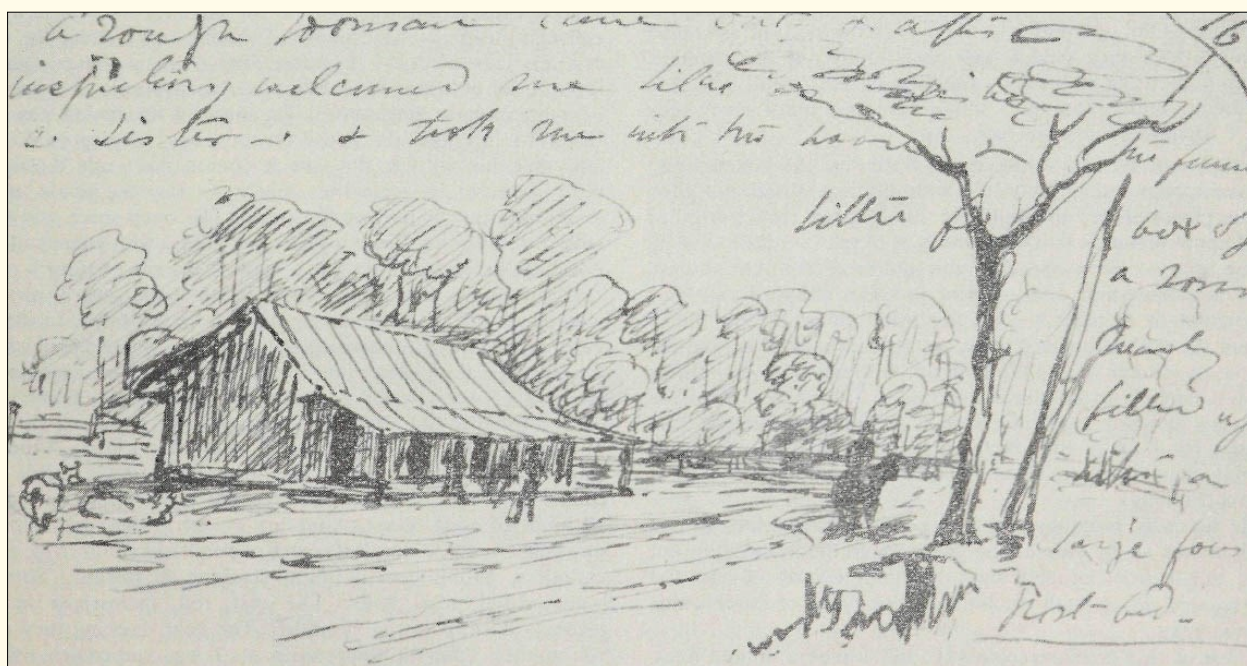 a rough woman came out & after 16
inspecting welcomed me like
a sister - & took me into the
the funny
little
but of
a room
nearly
filled up
with a
large four
Post-bed.